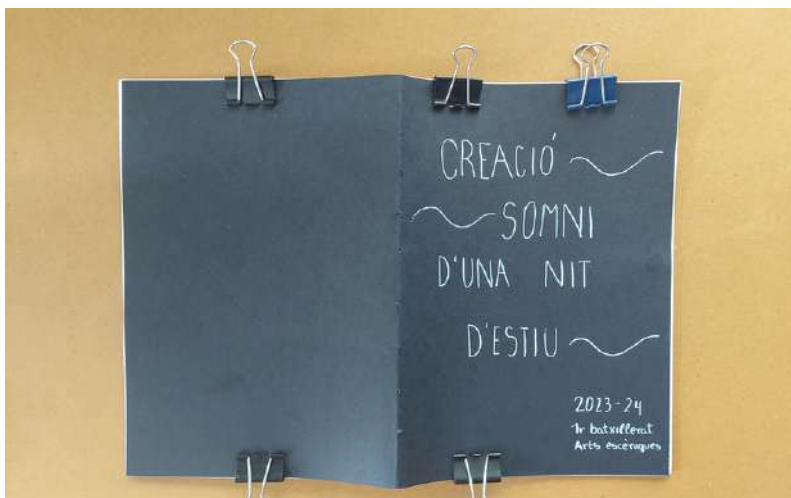 CREACIÓ
SOMNI
D'UNA NIT
D'ESTIU
2023-24
1r batxillerat
Arts escèniques